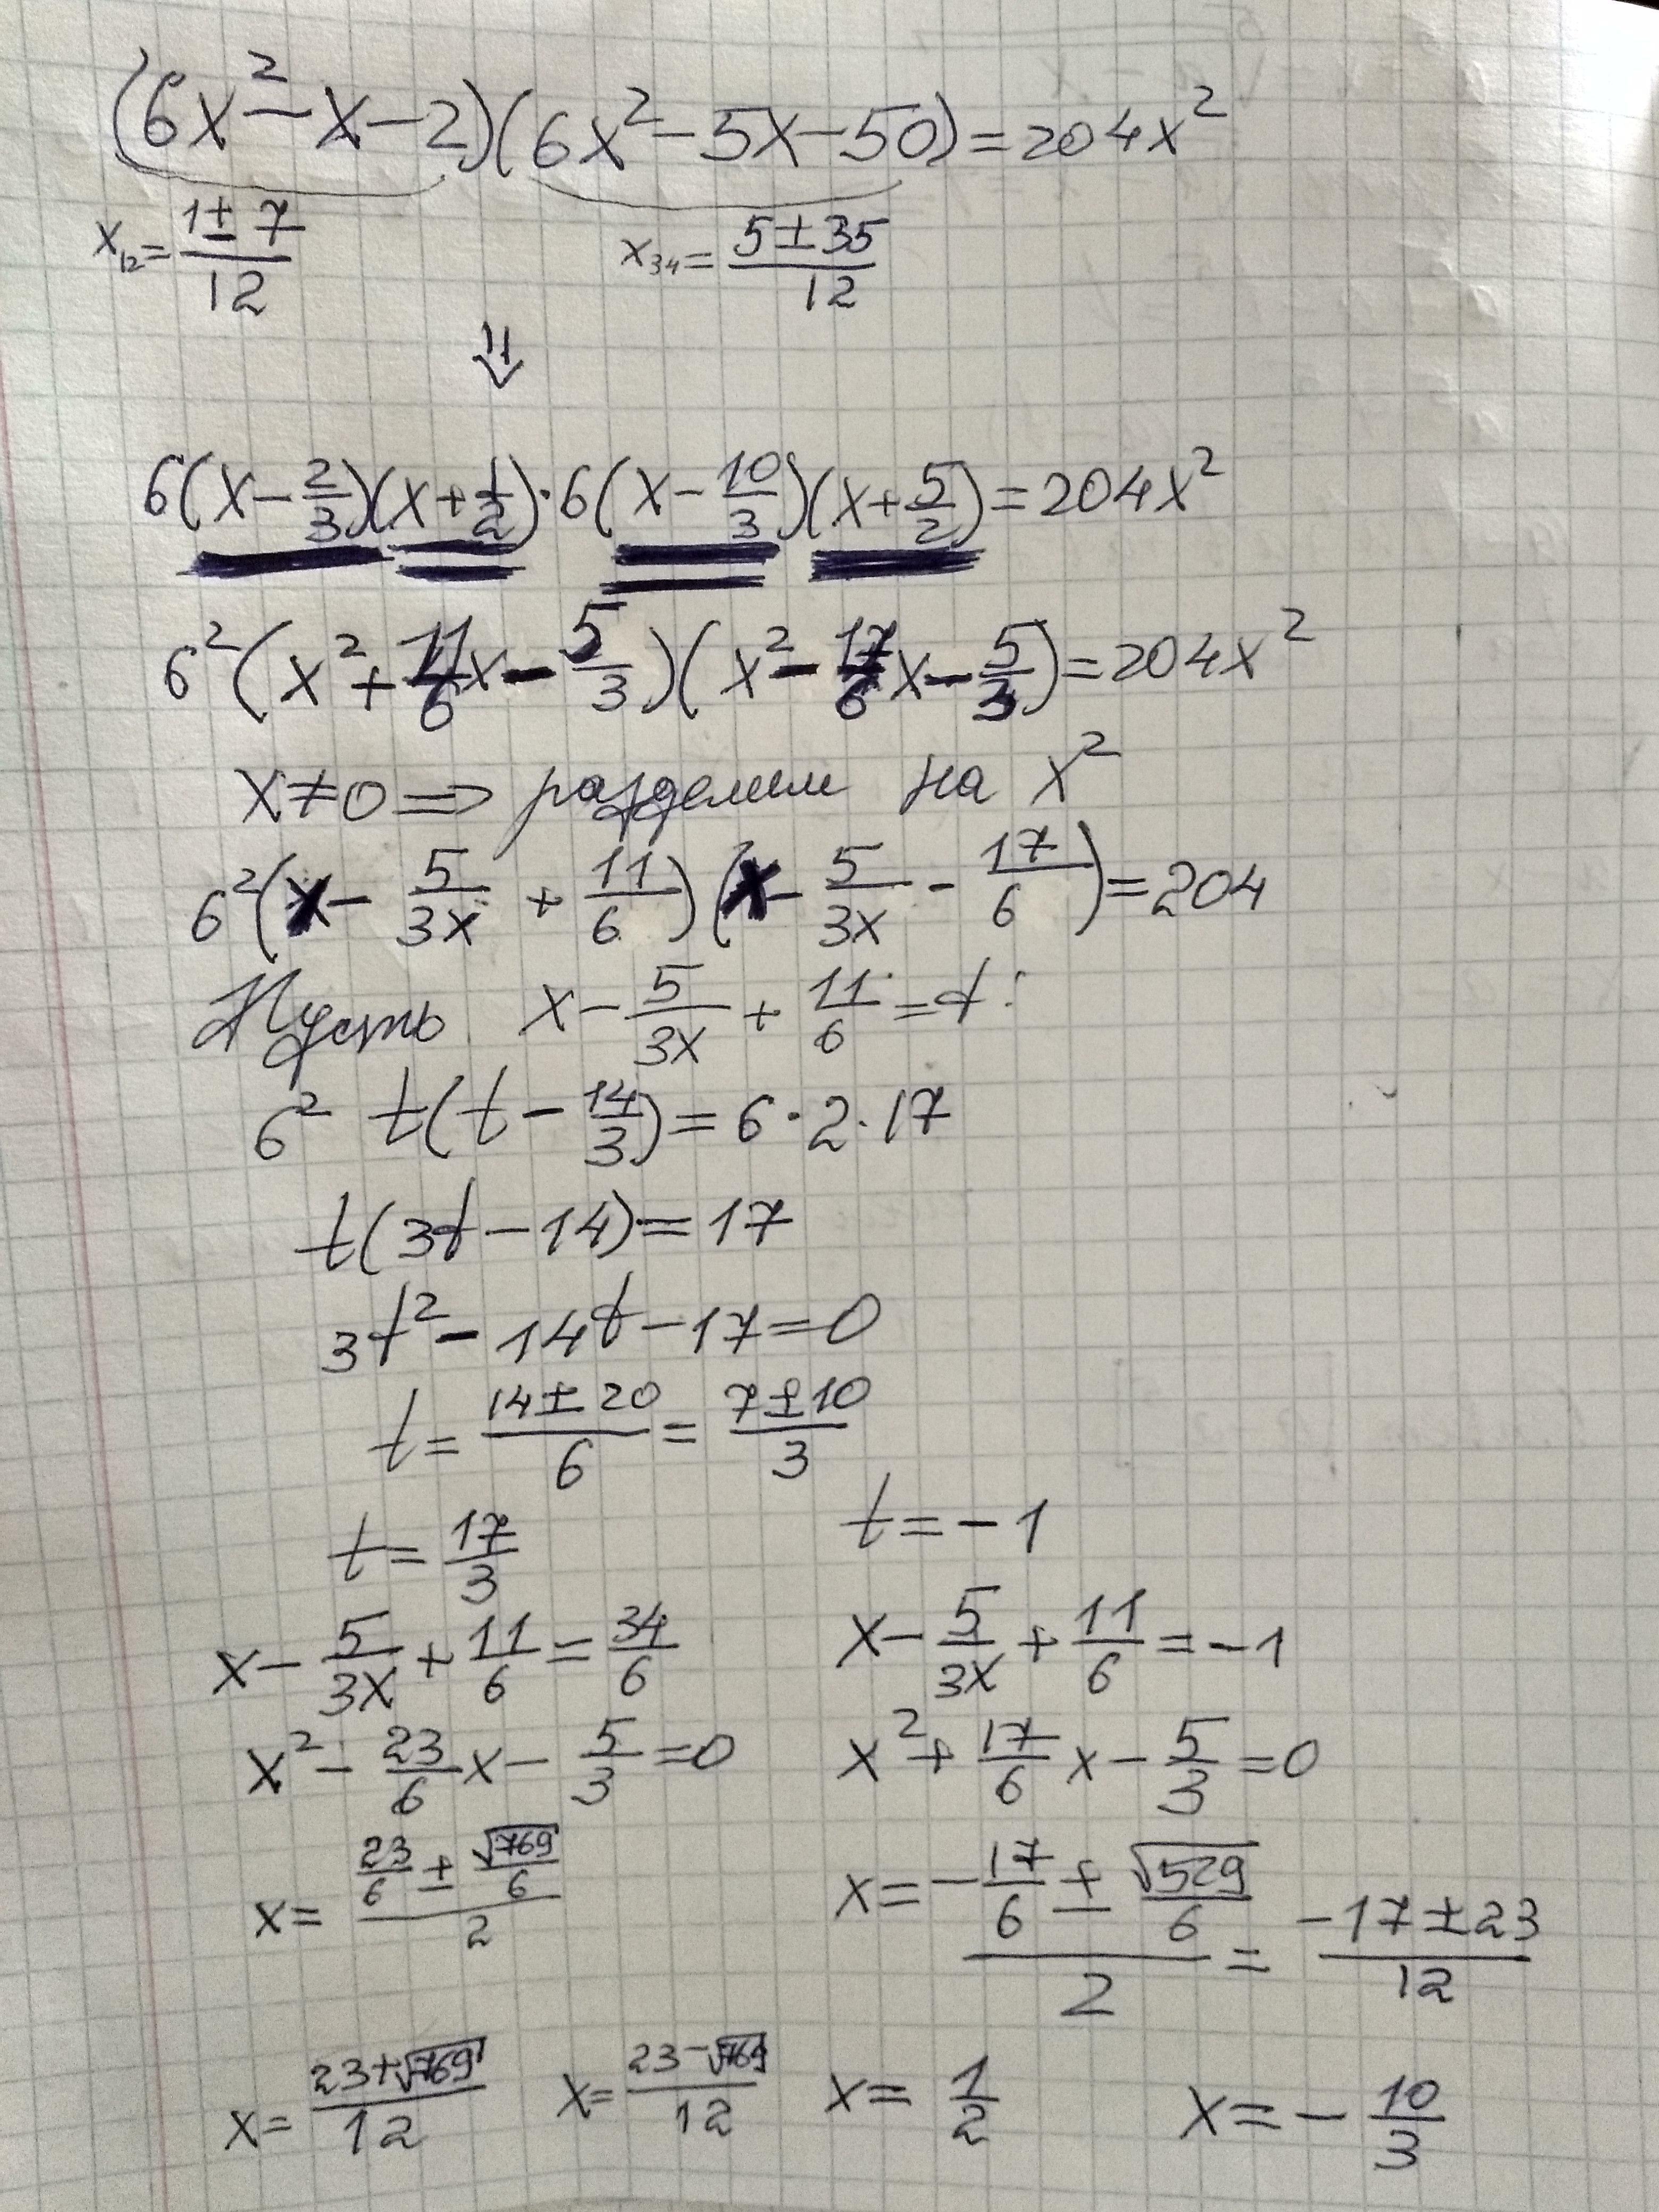 (6x² − x − 2)(6x² − 5x − 50) = 204x²
x₁₂ = (1 ± 7)/12    x₃₄ = (5 ± 35)/12
⇓
6(x − 2/3)(x + 1/2)·6(x − 10/3)(x + 5/2) = 204x²
6²(x² + 11/6 x − 5/3)(x² − 17/6 x − 5/3) = 204x²
x ≠ 0 ⇒ разделим на x²
6²(x − 5/(3x) + 11/6)(x − 5/(3x) − 17/6) = 204
Пусть x − 5/(3x) + 11/6 = t:
6² t(t − 14/3) = 6·2·17
t(3t − 14) = 17
3t² − 14t − 17 = 0
t = (14 ± 20)/6 = (7 ± 10)/3
t = 17/3    t = −1
x − 5/(3x) + 11/6 = 34/6    x − 5/(3x) + 11/6 = −1
x² − 23/6 x − 5/3 = 0    x² + 17/6 x − 5/3 = 0
x = (23/6 ± √769/6)/2    x = (−17/6 ± √529/6)/2 = (−17 ± 23)/12
x = (23 + √769)/12    x = (23 − √769)/12    x = 1/2    x = −10/3